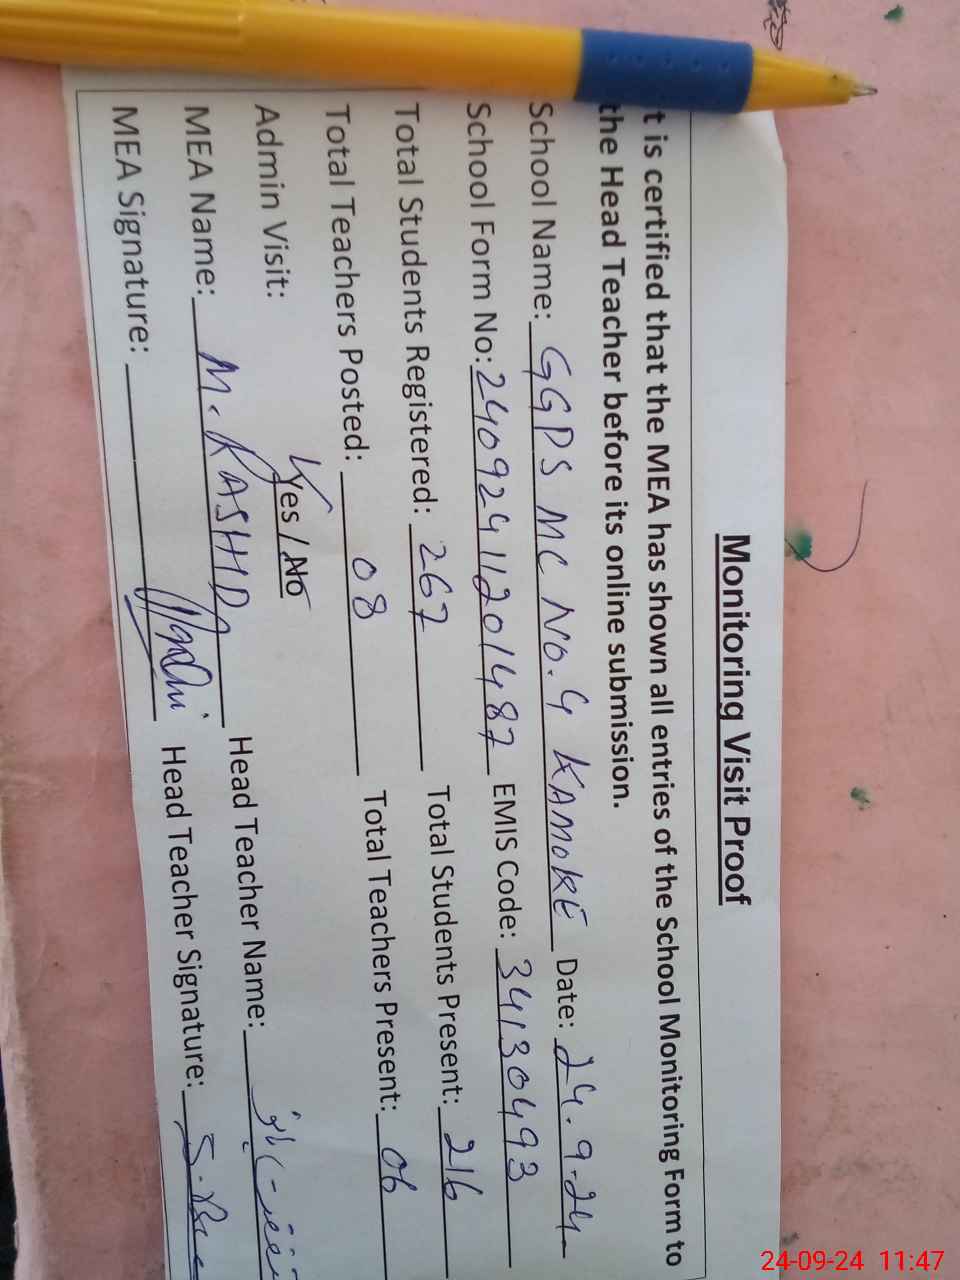 Monitoring Visit Proof
t is certified that the MEA has shown all entries of the School Monitoring Form to
the Head Teacher before its online submission.
School Name: GGPS MC NO. 4 KAMOKE Date: 24.9.24
School Form No: 24092411201487 EMIS Code: 34130493
Total Students Registered: 267 Total Students Present: 216
Total Teachers Posted: 08 Total Teachers Present: 06
Admin Visit: Yes / No
MEA Name: M. KASHID Head Teacher Name:
MEA Signature: Head Teacher Signature:
24-09-24 11:47